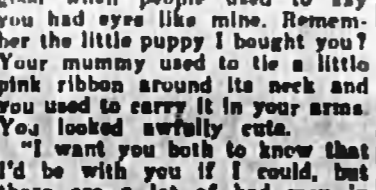 when people used to say
you had eyes like mine. Remem-
ber the little puppy I bought you?
Your mummy used to tie a little
pink ribbon around its neck and
you used to carry it in your arms.
You looked awfully cute.
"I want you both to know that
I'd be with you if I could, but
there are a lot of bad men in